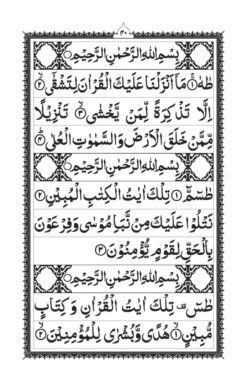 ۴۰
بِسْمِ اللّٰهِ الرَّحْمٰنِ الرَّحِيْمِ
طٰهٰ ۚ﴿۱﴾ مَاۤ اَنْزَلْنَا عَلَيْكَ الْقُرْاٰنَ لِتَشْقٰۤى ۙ﴿۲﴾
اِلَّا تَذْكِرَةً لِّمَنْ يَّخْشٰى ۙ﴿۳﴾ تَنْزِيْلًا
مِّمَّنْ خَلَقَ الْاَرْضَ وَالسَّمٰوٰتِ الْعُلٰى ؕ﴿۴﴾
بِسْمِ اللّٰهِ الرَّحْمٰنِ الرَّحِيْمِ
طٰسٓمّٓ ﴿۱﴾ تِلْكَ اٰيٰتُ الْكِتٰبِ الْمُبِيْنِ ﴿۲﴾
نَتْلُوْا عَلَيْكَ مِنْ نَّبَاِ مُوْسٰى وَفِرْعَوْنَ
بِالْحَقِّ لِقَوْمٍ يُّؤْمِنُوْنَ ﴿۳﴾
بِسْمِ اللّٰهِ الرَّحْمٰنِ الرَّحِيْمِ
طٰسٓ ۟ تِلْكَ اٰيٰتُ الْقُرْاٰنِ وَكِتَابٍ
مُّبِيْنٍ ۙ﴿۱﴾ هُدًى وَّبُشْرٰى لِلْمُؤْمِنِيْنَ ۙ﴿۲﴾